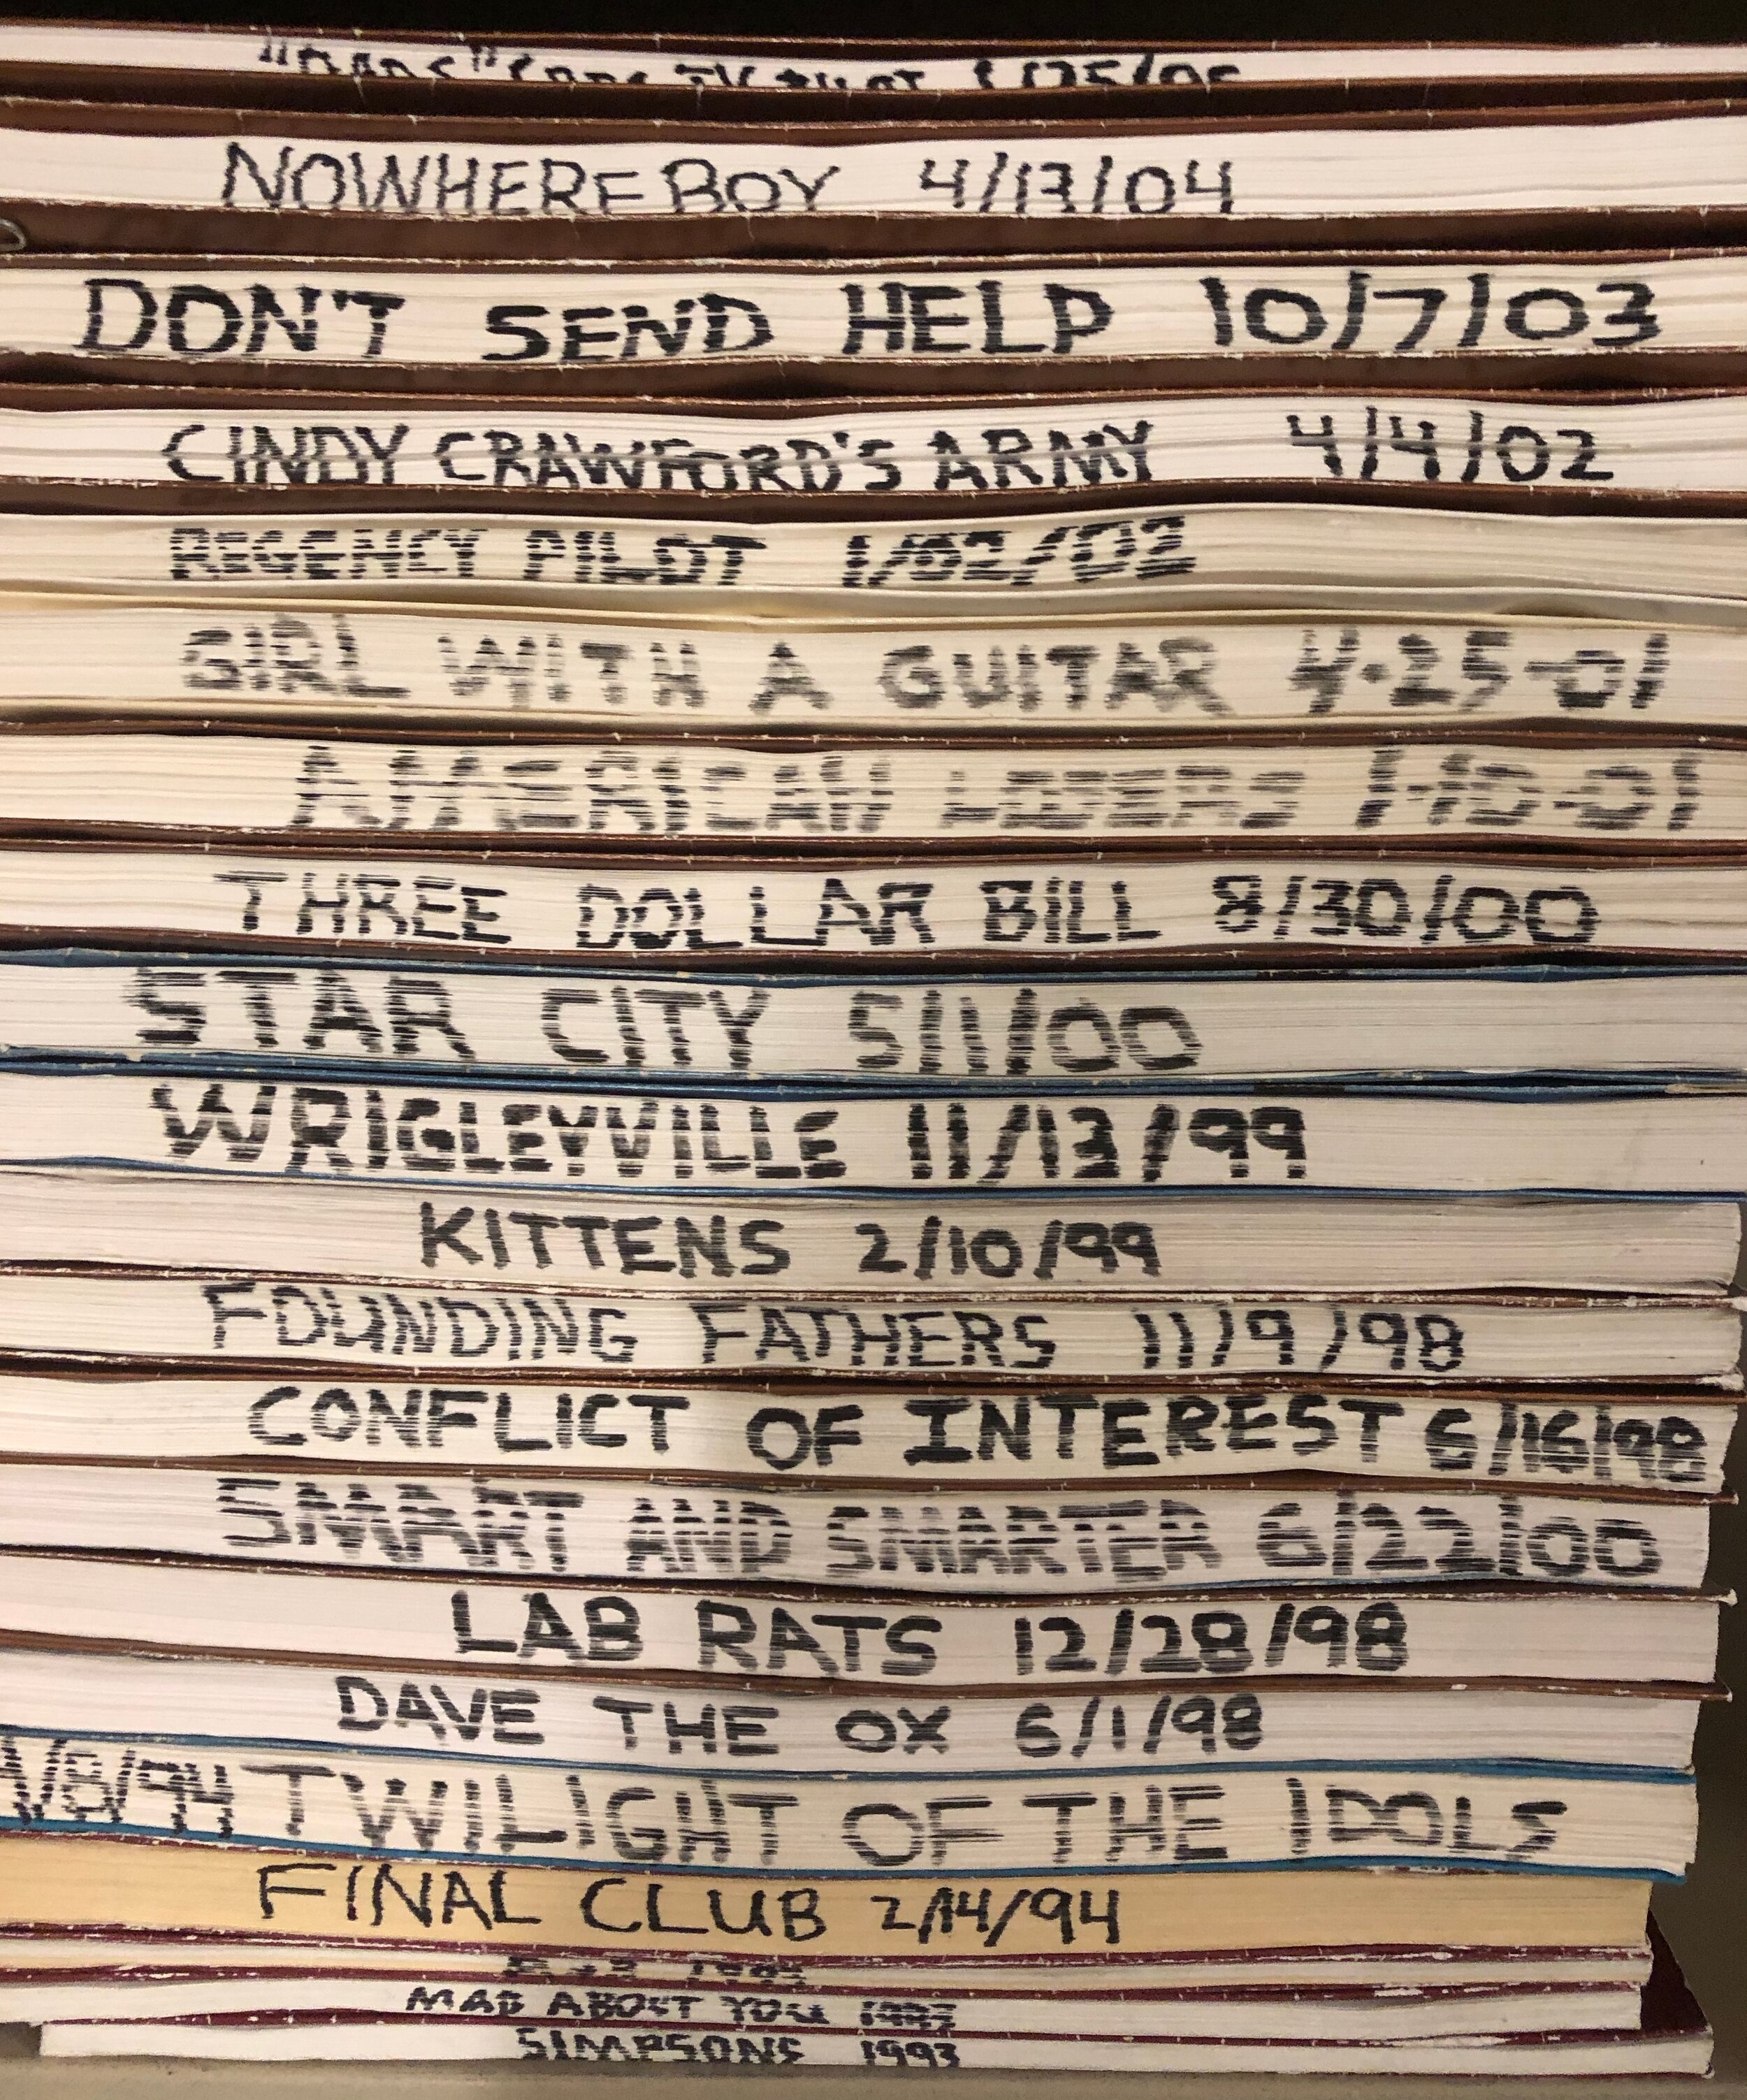 NOWHERE BOY 4/13/04
DON'T SEND HELP 10/7/03
CINDY CRAWFORD'S ARMY 4/4/02
REGENCY PILOT 1/02/02
GIRL WITH A GUITAR 4-25-01
AMERICAN LOSERS 1-10-01
THREE DOLLAR BILL 8/30/00
STAR CITY 5/1/00
WRIGLEYVILLE 11/13/99
KITTENS 2/10/99
FOUNDING FATHERS 11/9/98
CONFLICT OF INTEREST 6/16/98
SMART AND SMARTER 6/22/00
LAB RATS 12/28/98
DAVE THE OX 6/1/98
TWILIGHT OF THE IDOLS
FINAL CLUB 2/14/94
MAD ABOUT YOU 1993
SIMPSONS 1993